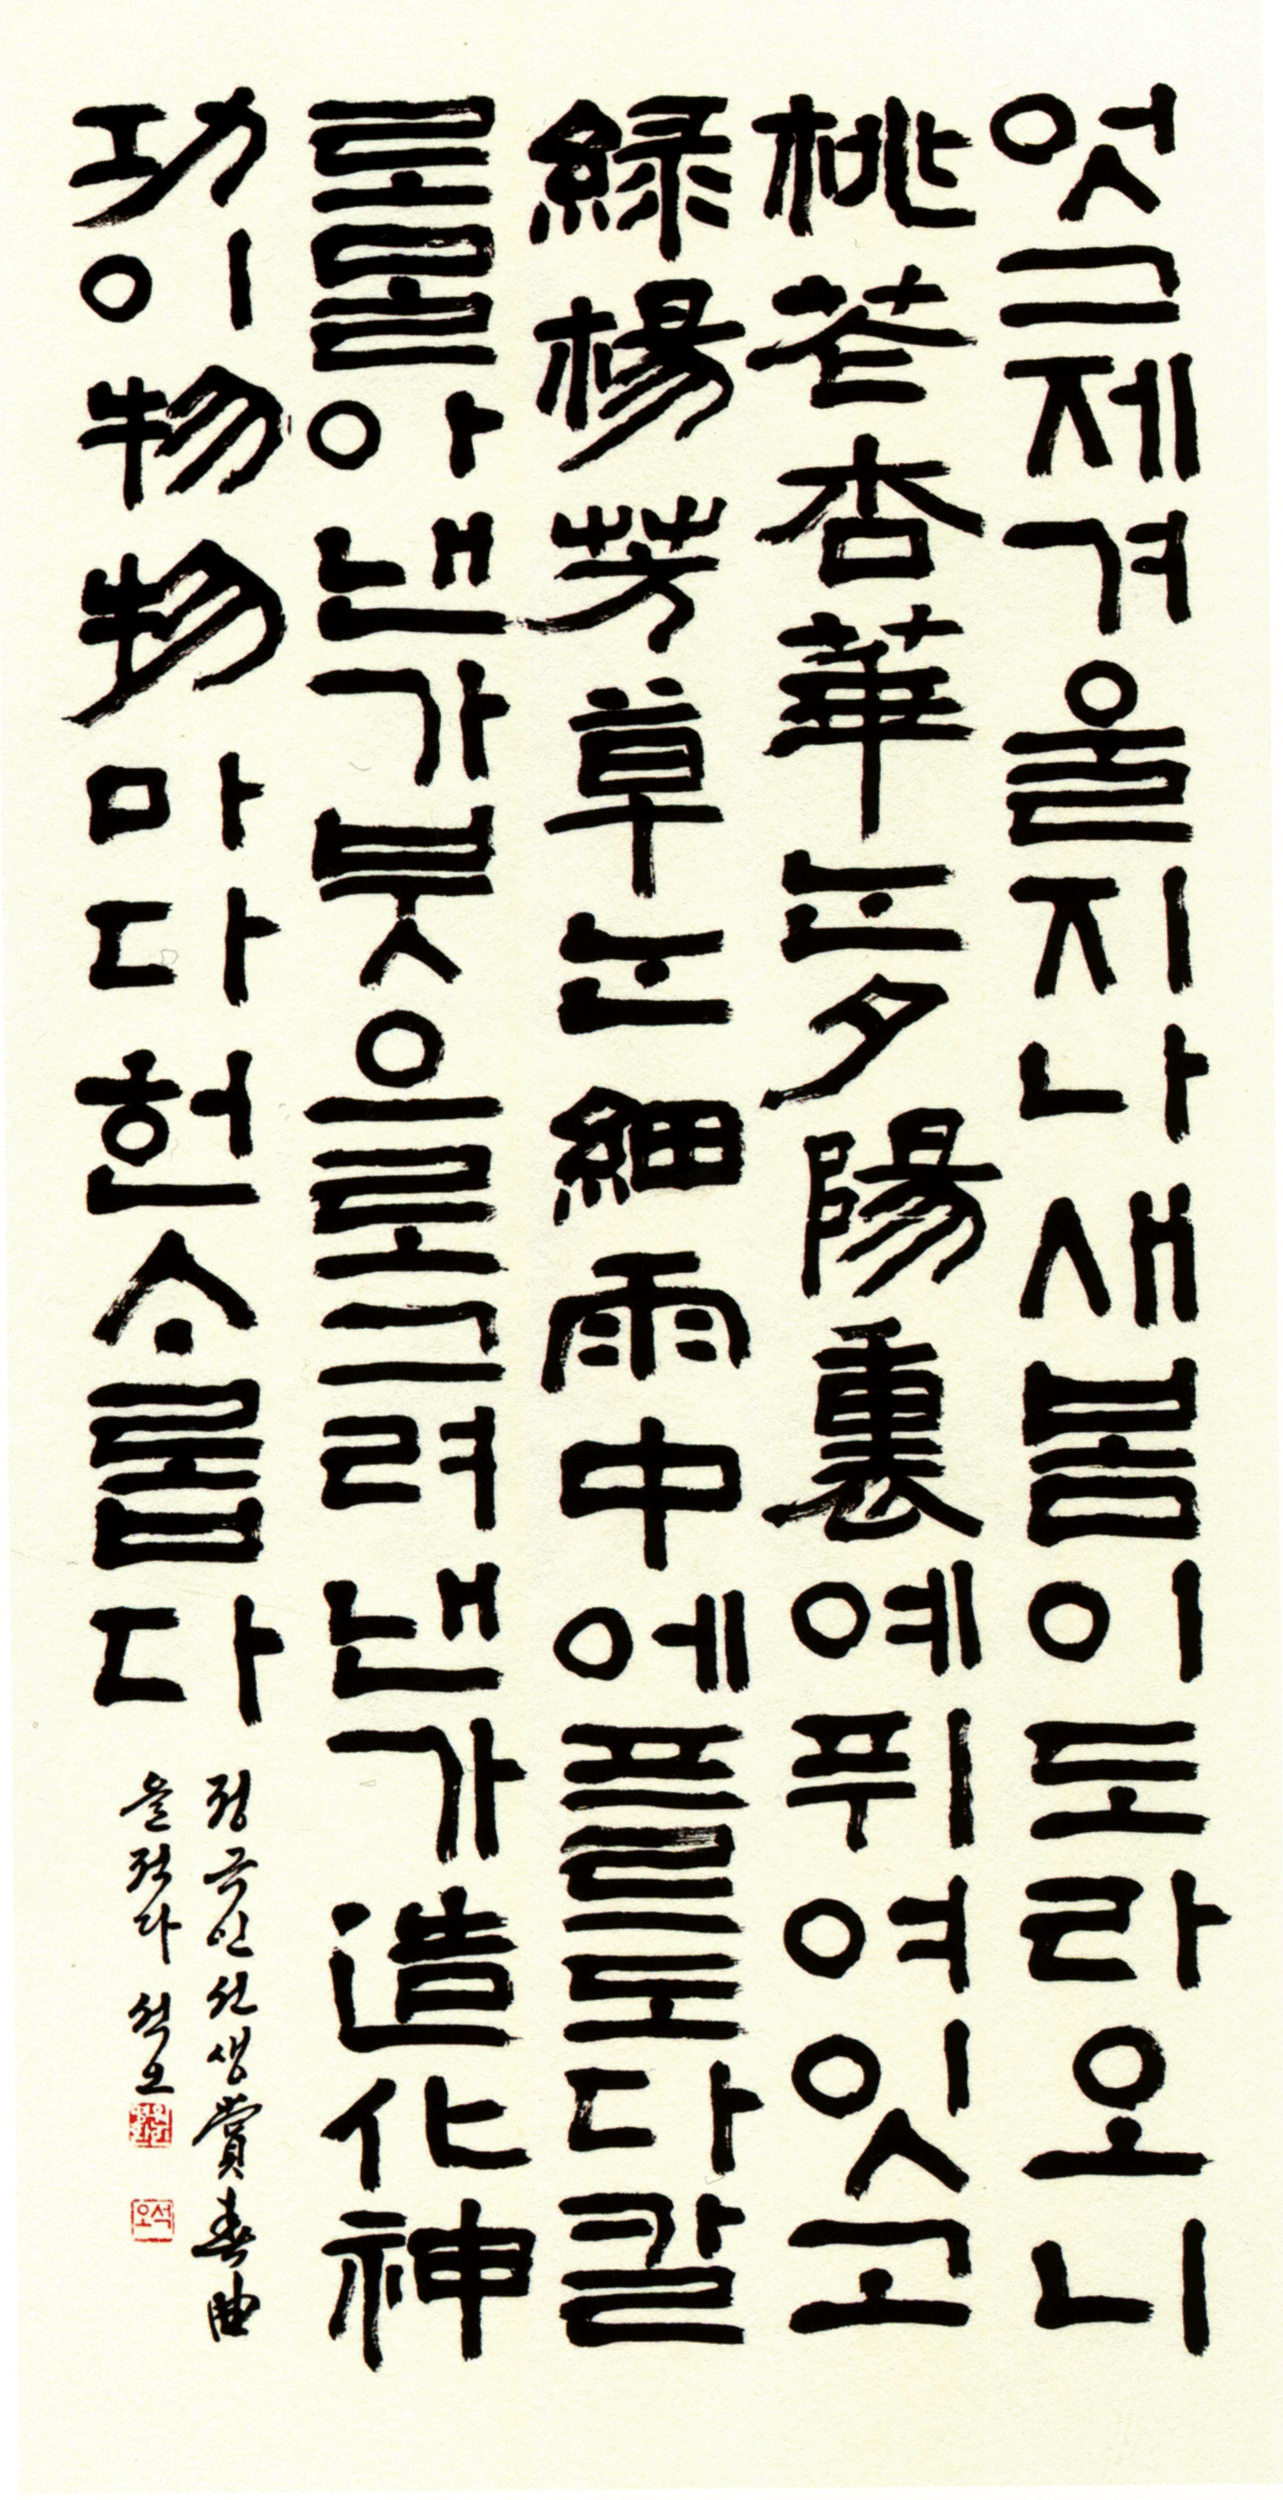 엇그제겨을지나새봄이도라오니
桃花杏華ᄂᆞᆫ夕陽裏예퓌여잇고
綠楊芳草ᄂᆞᆫ細雨中에프르도다칼
로ᄆᆞᆯ아낸가붓으로그려낸가造化神
功이物物마다헌ᄉᆞ롬다
정극인선생賞春曲
을적다 석오
석오